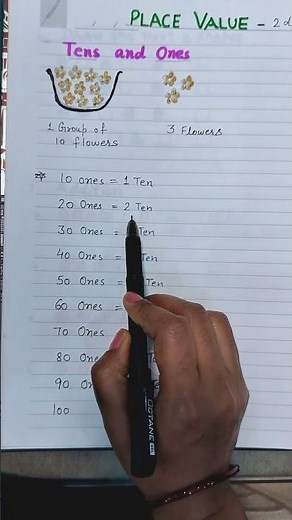 PLACE VALUE - 2d
Tens and Ones
1 Group of 10 flowers
3 Flowers
10 ones = 1 Ten
20 Ones = 2 Ten
30 Ones = Ten
40 Ones = Ten
50 Ones = Ten
60 Ones =
70 Ones
80 On
90 On
100
OCTANE